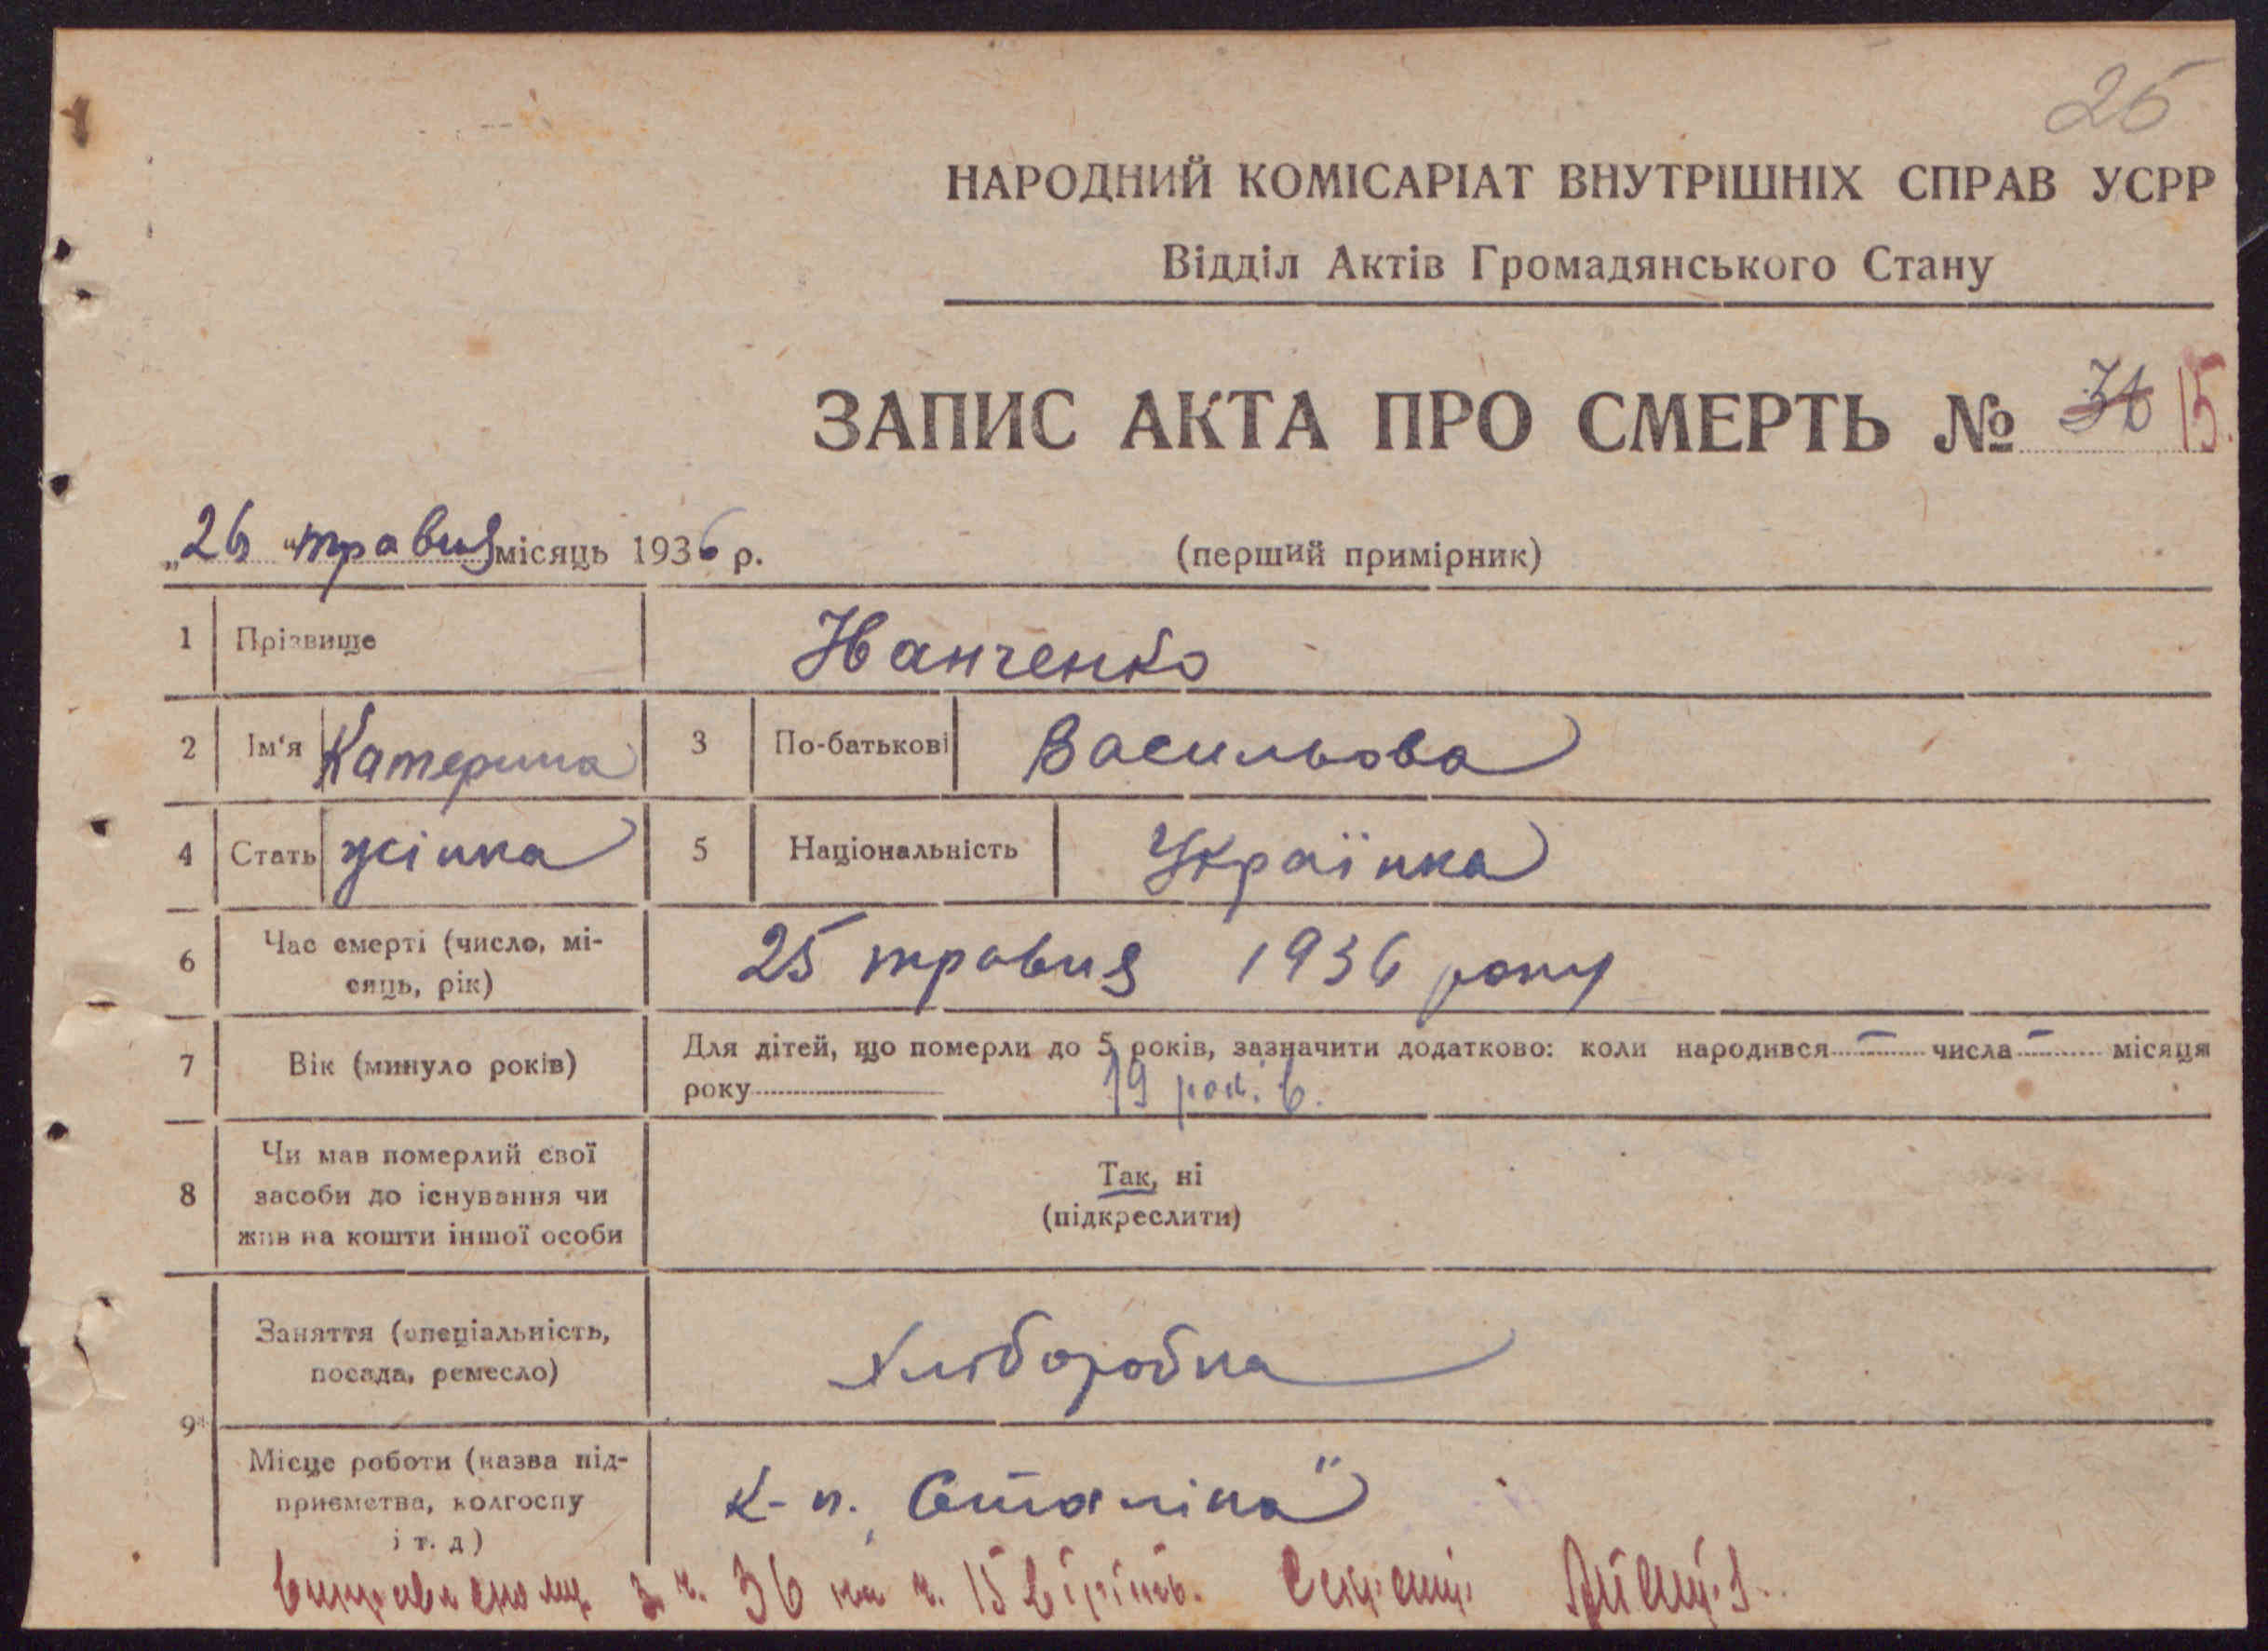 25
НАРОДНИЙ КОМІСАРІАТ ВНУТРІШНІХ СПРАВ УСРР
Відділ Актів Громадянського Стану
ЗАПИС АКТА ПРО СМЕРТЬ № 36 15.
„26 " травня місяць 1936 р. (перший примірник)
1 Прізвище Іванченко
2 Ім'я Катерина 3 По-батькові Васильова
4 Стать жінка 5 Національність Українка
6 Час смерті (число, мі-
сяць, рік) 25 травня 1936 року
7 Вік (минуло років) Для дітей, що померли до 5 років, зазначити додатково: коли народився — числа — місяця
року — 19 рок. в.
8 Чи мав померлий свої
засоби до існування чи
жив на кошти іншої особи
Так, ні
(підкреслити)
9 Заняття (спеціальність,
посада, ремесло) Хліборобка
Місце роботи (назва під-
приємства, колгоспу
і т. д) к-п. „Сталіна"
з ч. 36 на ч. 15 вірить.